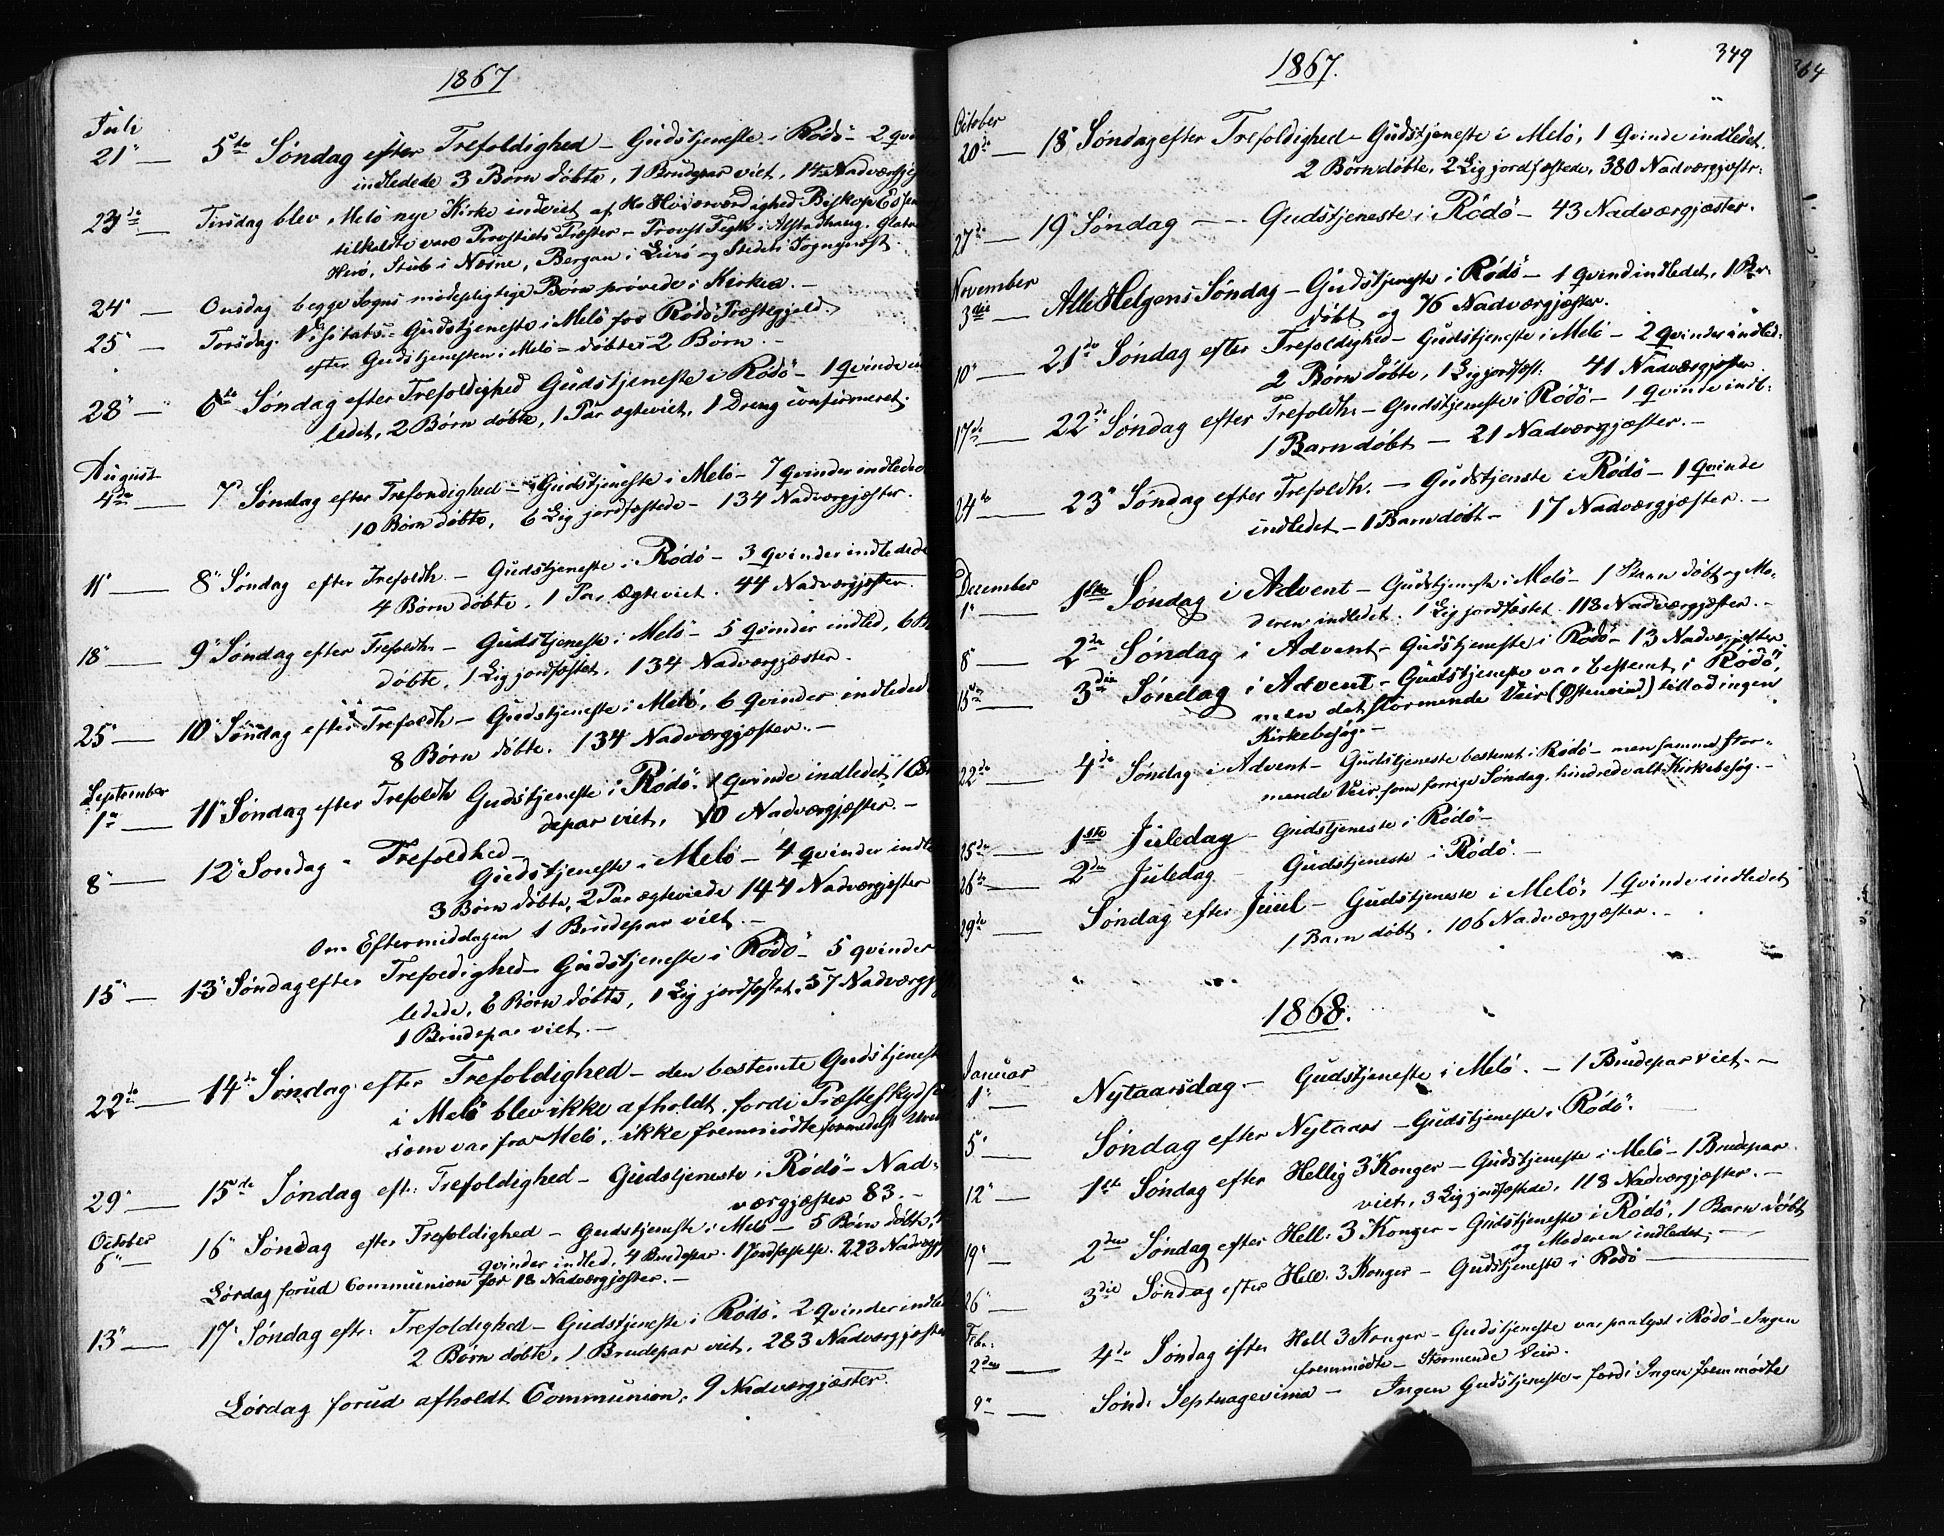 1867
Juli
21" — 5te Søndag efter Trefoldighed – Gudstjeneste i Rödö – 2 qvin
indledede 3 Børn døbte, 1 Brudepar viet, 14 Nadvergjes
23de — Tirsdag blev Melö nye Kirke indviet af Hs Høiærværdighed Biskop Essen
tilkaldte vare Provstiets Præster – Provst i Alstadhaug,
Herö, Stub i Nesne, Bergan i Lurö og Stedets Sognepræst.
24" — Onsdag begge Sogns mødepligtige Børn prøvede i Kirken. –
25" — Torsdag. Visitats-Gudstjeneste i Melö for Rödö Præstegjeld.
efter Gudstjenesten i Melö – døbtes 2 Børn. –
28" — 6te Søndag efter Trefoldighed Gudstjeneste i Rödö – 1 qvinde in
ledet, 2 Børn døbte, 1 Par ægteviet, 1 Dreng confirmeret.
August
4de — 7" Søndag efter Trefondighed – Gudstjeneste i Melö – 7 qvinder indlede
10 Børn døbte, 6 Lig jordfæstede – 134 Nadværgjæster.
11" — 8" Søndag efter Trefoldh. – Gudstjeneste i Rödö – 3 qvinder indledede
4 Børn døbte, 1 Par ægteviet. 44 Nadværgjæster.
18" — 9" Søndag efter Trefoldh. – Gudstjeneste i Melö – 5 qvinder indled, 6 B
døbte, 1 Lig jordfæstet, 134 Nadværgjæster.
25" — 10" Søndag efter Trefoldh – Gudstjeneste i Melö, 6 qvinder indleded
8 Børn døbte. 134 Nadværgjæster. –
September
1" — 11" Søndag efter Trefoldh Gudstjeneste i Rödö. 1 qvinde indledet, 1 Br
depar viet, 10 Nadværgjæster. –
8" — 12" Søndag " Trefoldhed –
Gudstjeneste i Melö – 4 qvinder indle
3 Børn døbte, 2 Par ægteviede 144 Nadværgjæster
Om Eftermiddagen 1 Brudepar viet. –
15" — 13" Søndag efter Trefoedighed – Gudstjeneste i Rödö – 5 qvinder
ledede, 6 Børn døbte, 1 Lig jordfæstet, 57 Nadværgj
1 Brudepar viet. –
22de — 14de Søndag efter Trefoldighed – den bestemte Gudstjenest
i Melö blev ikke afholdt, fordi Præsteskyds
som var fra Melö, ikke fremmödte formedelst
29" — 15de Søndag eft: Trefoldighed – Gudstjeneste i Rödö – Nad-
værgjæster 83. –
October
6" — 16" Søndag efter Trefoldighed – Gudstjeneste i Melö – 5 Børn døbte,
qvinder indled, 4 Brudepar. 1 Jordfæstelse. 223 Nadværgj
Lørdag forud Communion for 18 Nadværgjæster. –
13" — 17" Søndag eft: Trefoldighed – Gudstjeneste i Rödö. 2 qvinder indle
2 Børn døbte, 1 Brudepar viet, 283 Nadværgjæste
Lørdag forud afholdt Communion, 9 Nadværgjæster.
1867.
349
364
October
20de — 18" Søndag efter Trefoldighed – Gudstjeneste i Melö, 1 Qvinde indledet.
2 Børn døbte, 2 Lig jordfæstede, 380 Nadværgjæstr.
27de — 19" Søndag – – Gudstjeneste i Rödö – 43 Nadværgjæster.
November
3die — Alle Helgens Søndag – Gudstjeneste i Rödö – 1 qvind indledet, 1 Br
døbt og 76 Nadværgjæster.
10" — 21de Søndag efter Trefoldighed – Gudstjeneste i Melö – 2 qvinder indled.
2 Børn døbte, 1 Lig jordfæst. 41 Nadværgjæster
17de — 22de Søndag efter Trefoldh. – Gudstjeneste i Rödö – 1 qvinde indl-
1 Barn døbt – 21 Nadværgjæster. –
24de — 23" Søndag efter Trefoldh. – Gudstjenste i Rödö – 1 Qvinde
indledet – 1 Barn döbt – 17 Nadværgjæster. –
December
1" — 1ste Søndag i Advent – Gudstjeneste i Melö – 1 Barn døbt og Mo-
deren indledet. 1 Lig jordfæstet. 118 Nadværgjæster. –
8" — 2de Søndag i Advent – Gudstjeneste i Rödö – 13 Nadværgjæster
15de — 3die Søndag i Advent – Gudstjeneste var bestemt i Rödö,
men det stormende Veir (Østenvind) tillod ingen
Kirkebesøg. –
22de — 4de Søndag i Advent – Gudstjeneste bestemt i Rödö – men samme stor-
mende Veir, som forrige Søndag, hindrede alt Kirkebesøg. –
25de — 1ste Juledag – Gudstjeneste i Rödö –
26de — 2den Juledag – Gudstjeneste i Rödö. –
29de — Søndag efter Juul – Gudstjeneste i Melö, 1 Qvinde indledet
1 Barn døbt, 106 Nadværgjæster. –
1868.
Januar
1" — Nytaarsdag – Gudstjeneste i Melö. – 1 Brudepar viet. –
5" — Søndag efter Nytaars – Gudstjeneste i Rödö.
12" — 1ste Søndag efter Hellig 3 Konger – Gudstjeneste i Melö – 1 Brudepar
viet, 3 Lig jordfæstede, 118 Nadværgjæster. –
19" — 2den Søndag efter Hell: 3 Konger – Gudstjeneste i Rödö, 1 Barn døbt
og Moderen indledet. –
26" — 3die Søndag efter Hell: 3 Konger – Gudstjeneste i Rödö –
Febr:
2den — 4de Søndag efter Hell 3 Konger – Gudstjeneste var paalyst i Rödö – Ingen
fremmødte – Stormende Veir.
9" — Sønd: Septuagesima – Ingen Gudstjeneste – fordi Ingen fremmødte